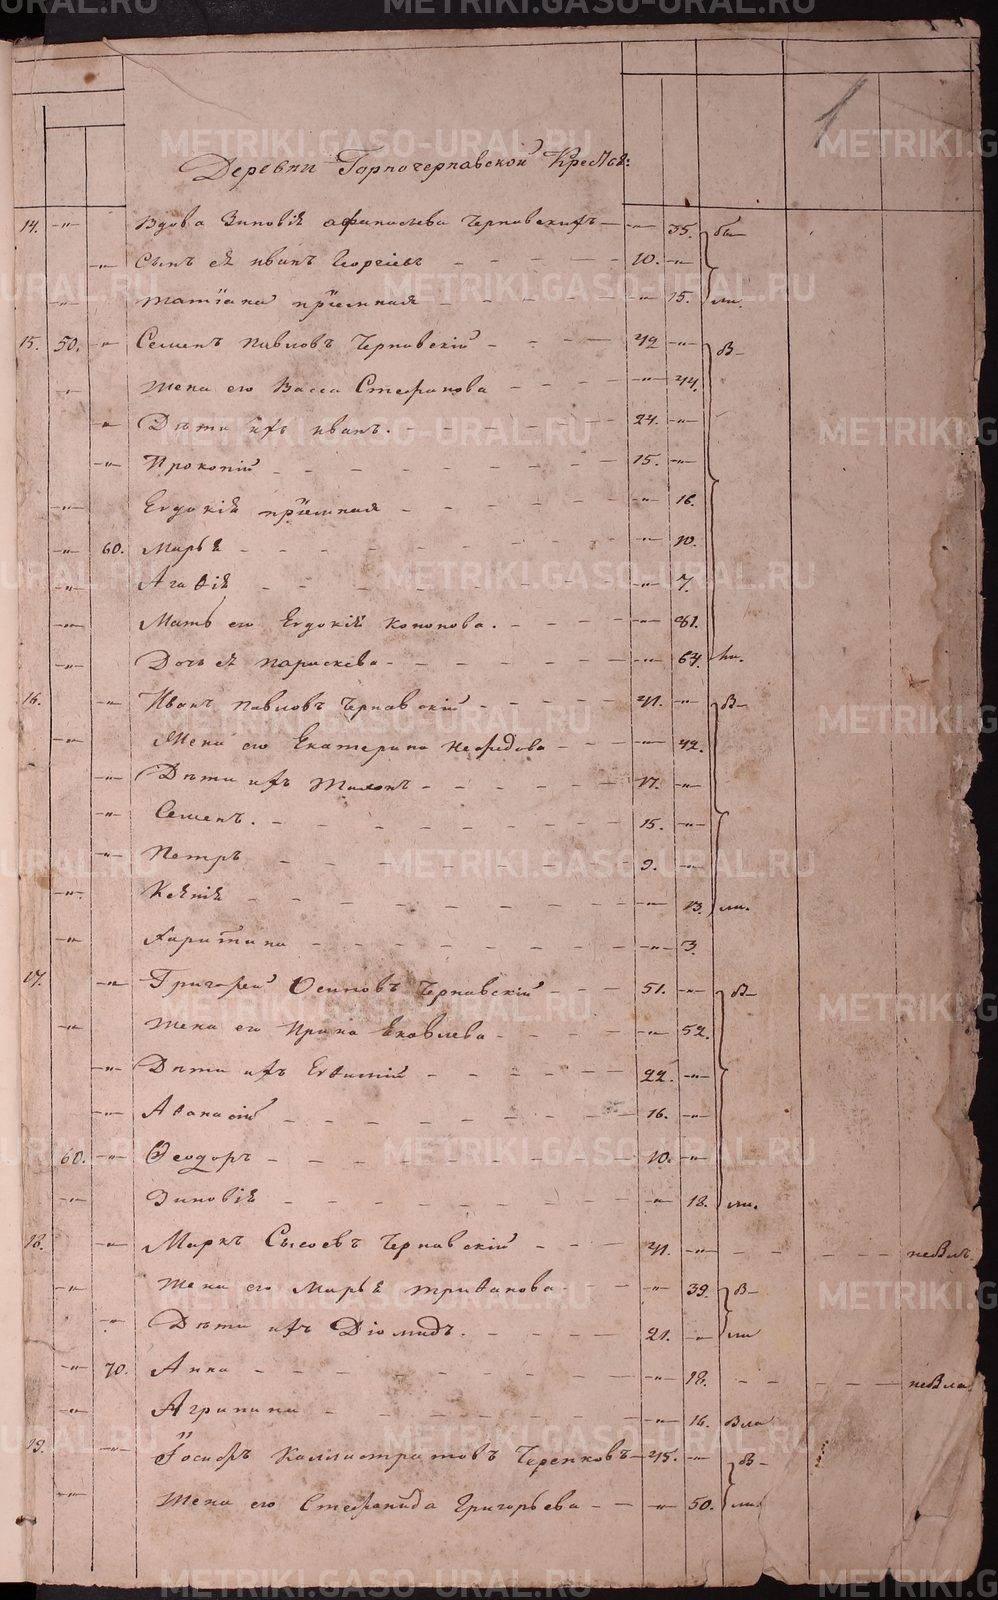 1
Деревни Горночернавской Крестья:
14. -"- Вдова Зиновiя Афанасьева Чернавскихъ - -"- 35. бы-
-"- Сынъ ея Иванъ Георгiевъ - 10. -"-
-"- Татiана прiемная - -"- 15. ли.
15. 50. -"- Семенъ Павловъ Чернавскiй - 49 -"- В-
-"- Жена его Васса Стефанова - -"- 44.
-"- Дети ихъ Иванъ. - 24. -"-
-"- Прокопiй - 15. -"-
-"- Евдокiя прiемная - -"- 16.
-"- 60. Марья - -"- 10.
-"- Агафiя - -"- 7.
-"- Мать его Евдокiя Кононова. - -"- 81.
-"- Дочь ея Параскева - -"- 64. ли.
16. -"- Иванъ Павловъ Чернавскiй - 41. -"- В-
-"- Жена его Екатерина Нефедова - -"- 42.
-"- Дети ихъ - 17. -"-
-"- Семенъ. - 15. -"-
-"- Петръ - 9. -"-
-"- Ксенiя - -"- 13. ли.
-"- Харитина - -"- 3.
17. -"- Григорей Осиповъ Чернавскiй - 51. -"- В-
-"- Жена его Ирина Яковлева - -"- 52.
-"- Дети ихъ Евѳимiй - 22. -"-
-"- Аѳанасiй - 16. -"-
60. -"- Ѳеодоръ - 10. -"-
-"- Зиновiя - -"- 18. ли.
18. -"- Маркъ Сысоевъ Чернавскiй - 41. -"- - небылъ
-"- Жена его Марья Триѳанова - -"- 39. В-
-"- Дети ихъ Дiомидъ. - 21. -"- ли
-"- 70. Анна - -"- 18. - небыла
-"- Агрипина - -"- 16. была
19. -"- Iосифъ Каллистратовъ Черепковъ - 45. -"- В-
-"- Жена его Стефанида Григорьева - -"- 50. ли
METRIKI.GASO-URAL.RU